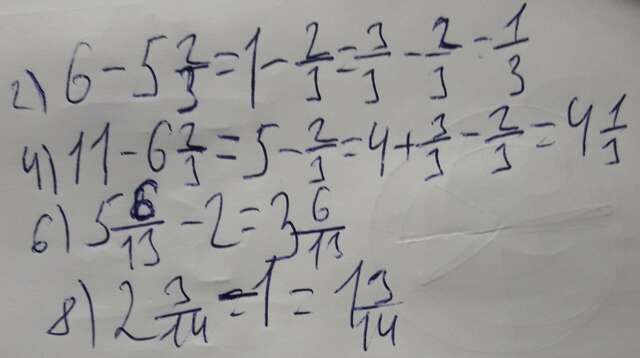 2) 6 - 5 2/3 = 1 - 2/3 = 3/3 - 2/3 - 1/3
4) 11 - 6 2/3 = 5 - 2/3 = 4 + 3/3 - 2/3 = 4 1/3
6) 5 6/13 - 2 = 3 6/13
8) 2 3/14 - 1 = 1 3/14